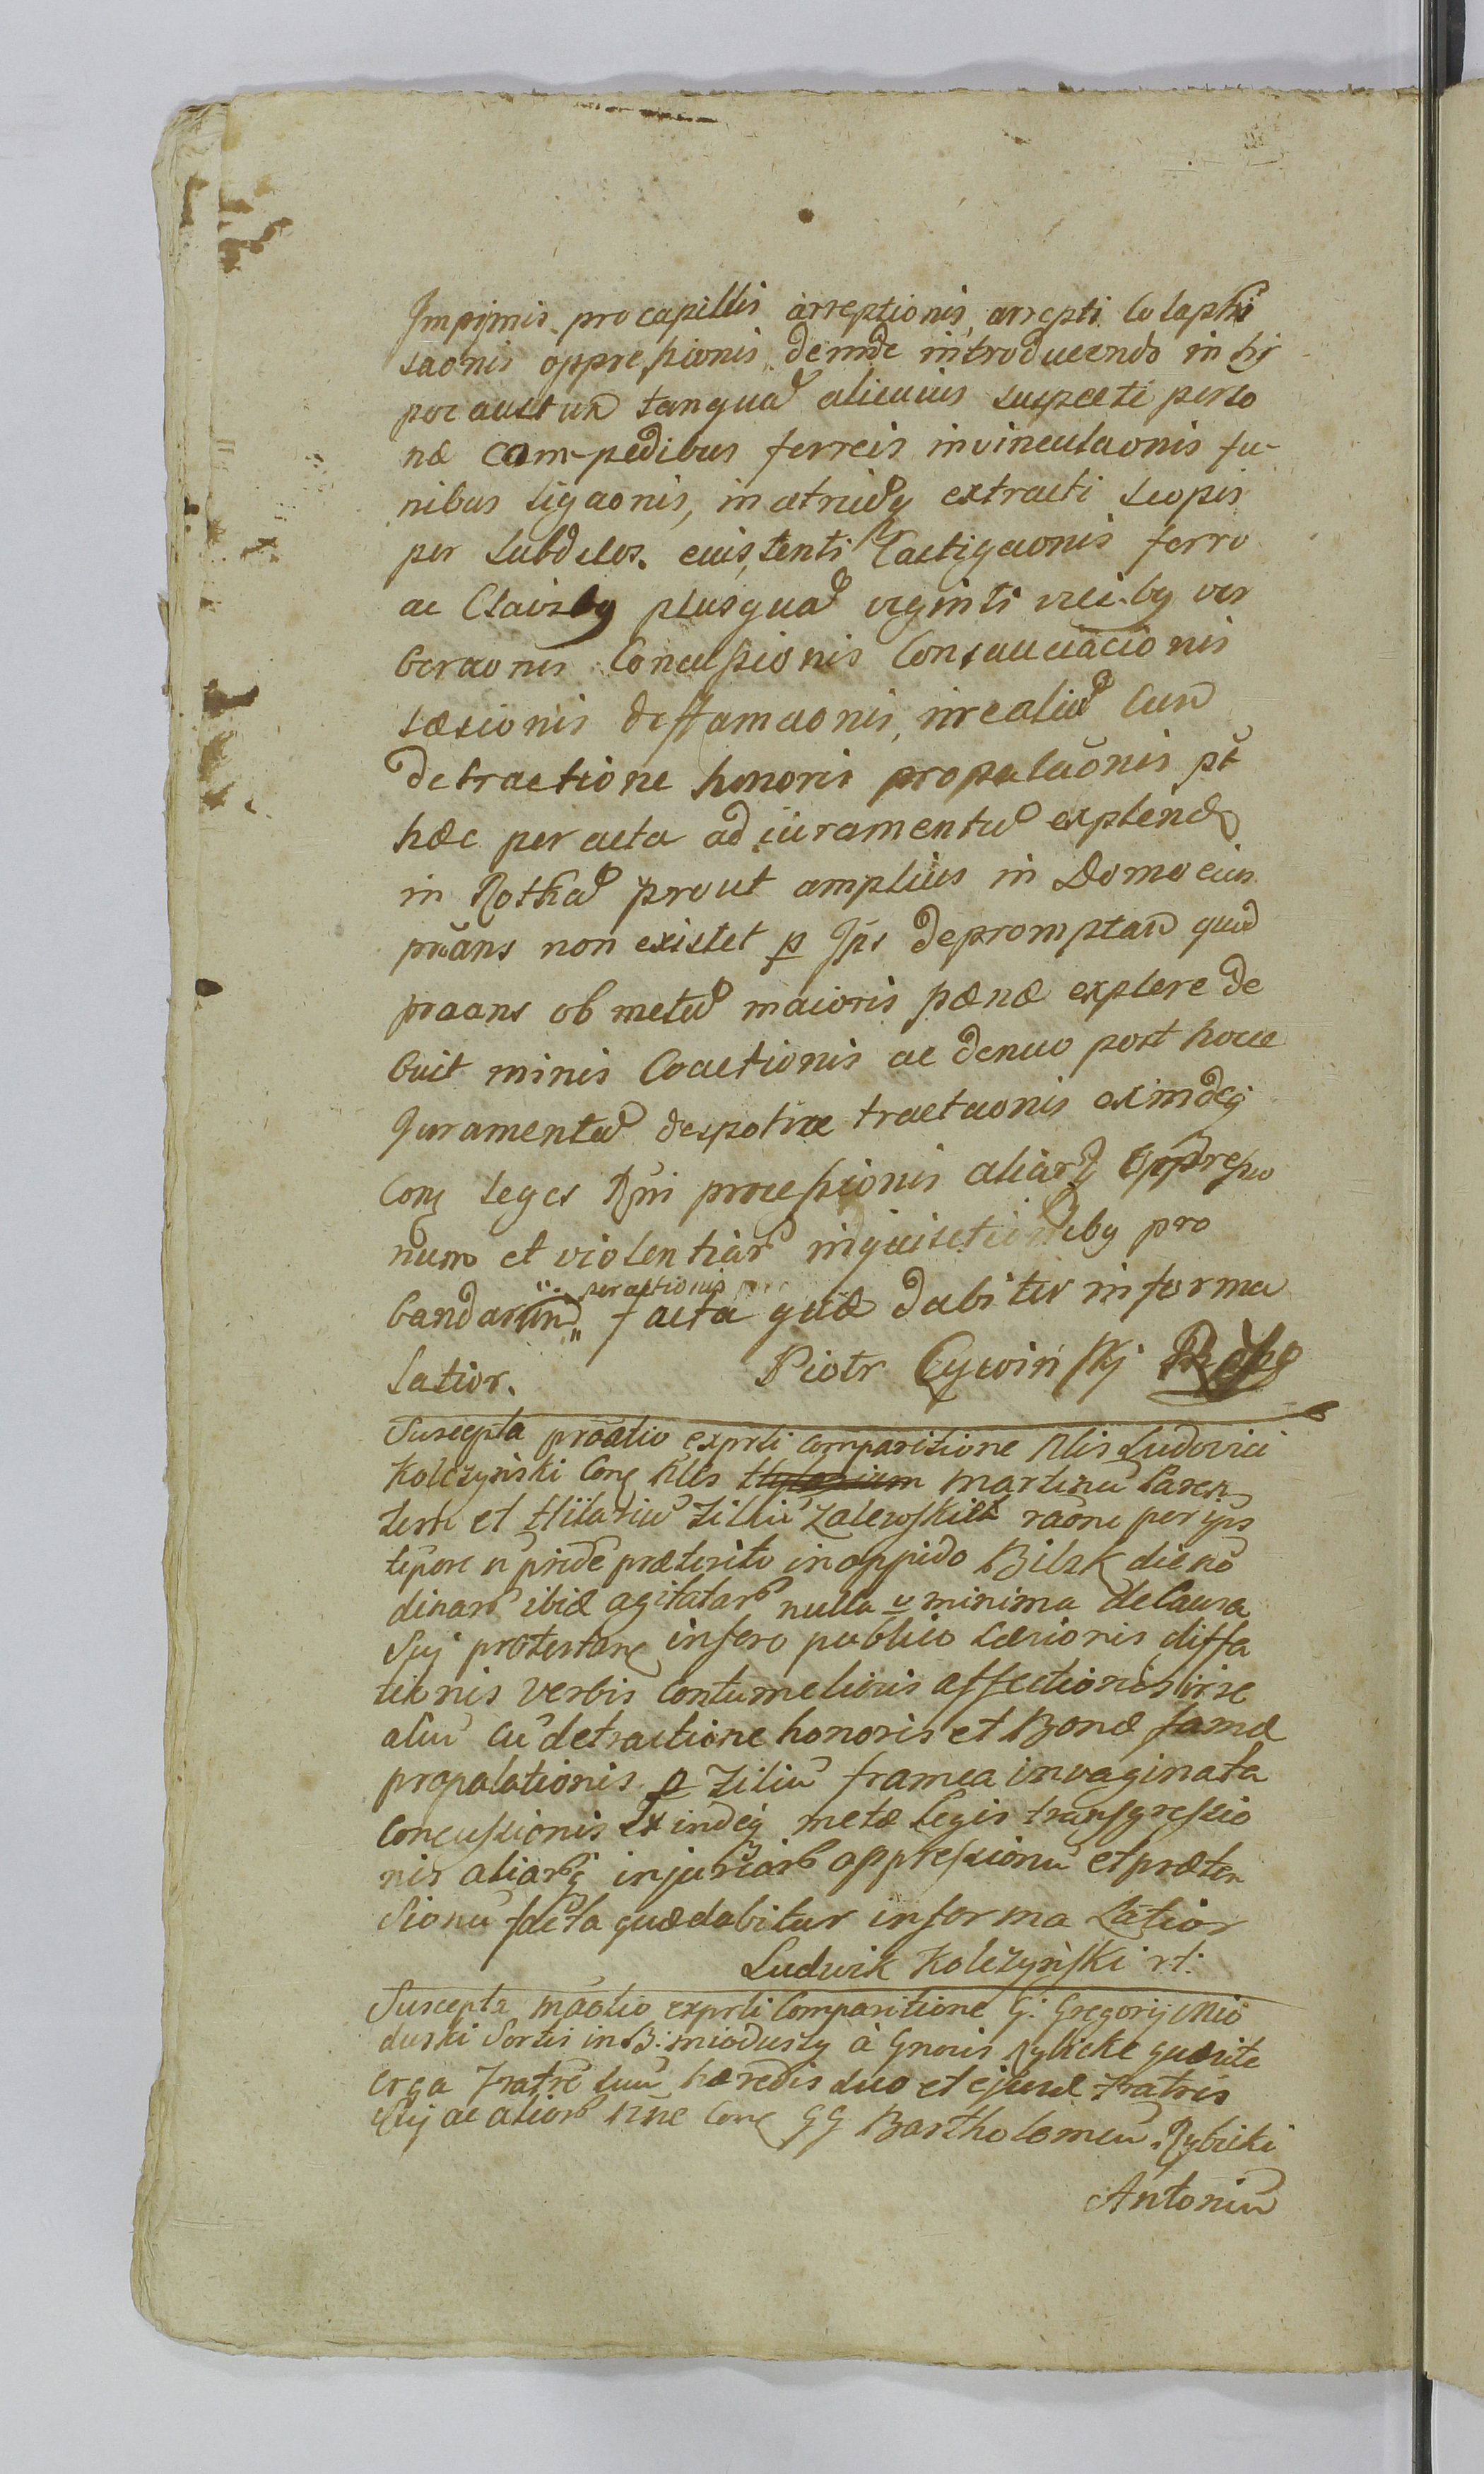 Imprimis pro capillis arreptionis, arrepti Colaphi
saonis oppressionis deinde introducendo in hy
pocaustum tanquam alicuius suspecti perso
næ compedibus ferreis invinculaonis fu-
nibus ligaonis, in atriumq extracti scopis
per subdelos. eius, tenti Castigaonis ferro
ac Clavibq plusquam viginti vicibq ver
beraonis Concussionis Consauciacionis
Læsionis deffamaonis, irrealium Cum
detractione honoris propalaonis pt
hæc peracta ad iuramentum explend
in Rotham prout amplius in Domo eius
praans non existet p Ips depromptam quid
praans ob metum maioris pænæ explere de
buit minis Coactionis ac denuo post hocce
Juramentum despotice tractaonis exindeq
Cong leges Rni processionis aliarq Oppressio
num et violentiar inquisitionibq pro
bandarum peractionis facta quæ dabitur in forma
Latior. Piotr Cywinski
Suscepta praatio exprli comparitione Nlis Ludovici
Kolczynski Cong Nles Martinu Paren
tem et Hilariu Filiu Zalewskie raone per ips
tepore n pride præterito in oppido Bilsk die nu
dinar ibid agitatar nulla v minima de Causa
Suj protestang in foro publico Læsionis diffa
tionis verbis Contumeliosis affectionis irre
aliu cu detractione honoris et Bonæ famæ
propalationis p Filiu framea invaginata
Concussionis Exindeq metæ Legis transgressio
nis aliarq injuriar oppressionu et præten
sionu facta quæ dabitur in forma Latior
Ludwik Kolczynski
Suscepta maatio exprli Comparitione G: Gregorij Mio
duski Sortis in B: mioduszy à Gnosis Rybicke quæsite
erga Fratre suu hæredis suo et ejusd Fratris
Suj ac alior nne Cong GG Bartholomeu Rybicki
Antoniu